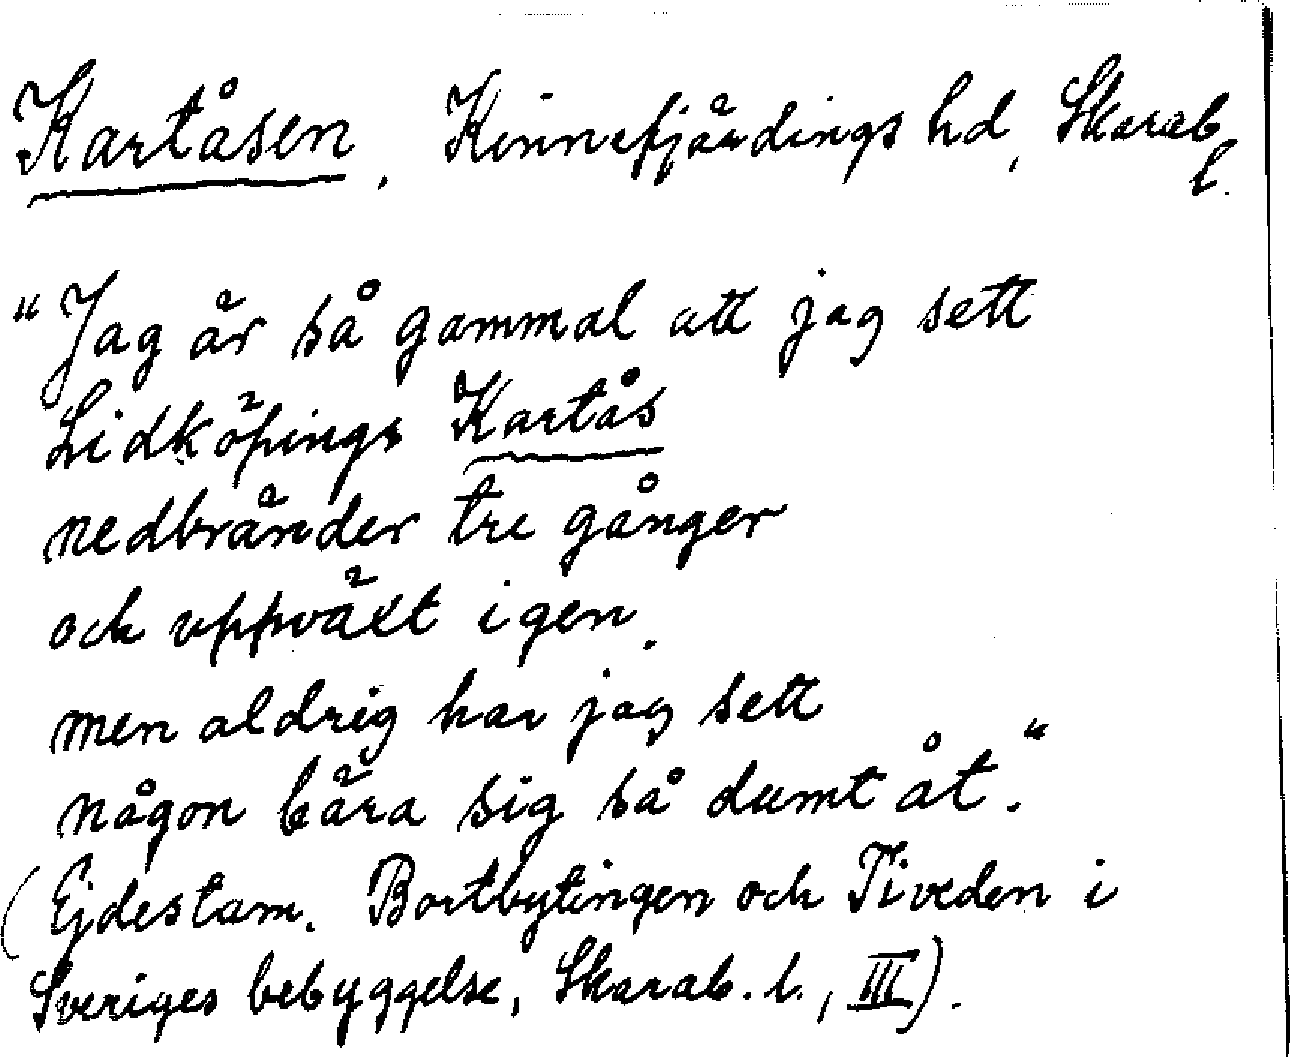 Kartåsen, Kinnefjärdings hd, Skarab.
l.
"Jag är så gammal att jag sett
Lidköpings Kartås
nedbränder tre gånger
och uppväxt igen.
men aldrig har jag sett
någon bära sig så dumt åt."
(Ejdestam. Bortbytingen och Tiveden i
Sveriges bebyggelse, Skarab. l., III).